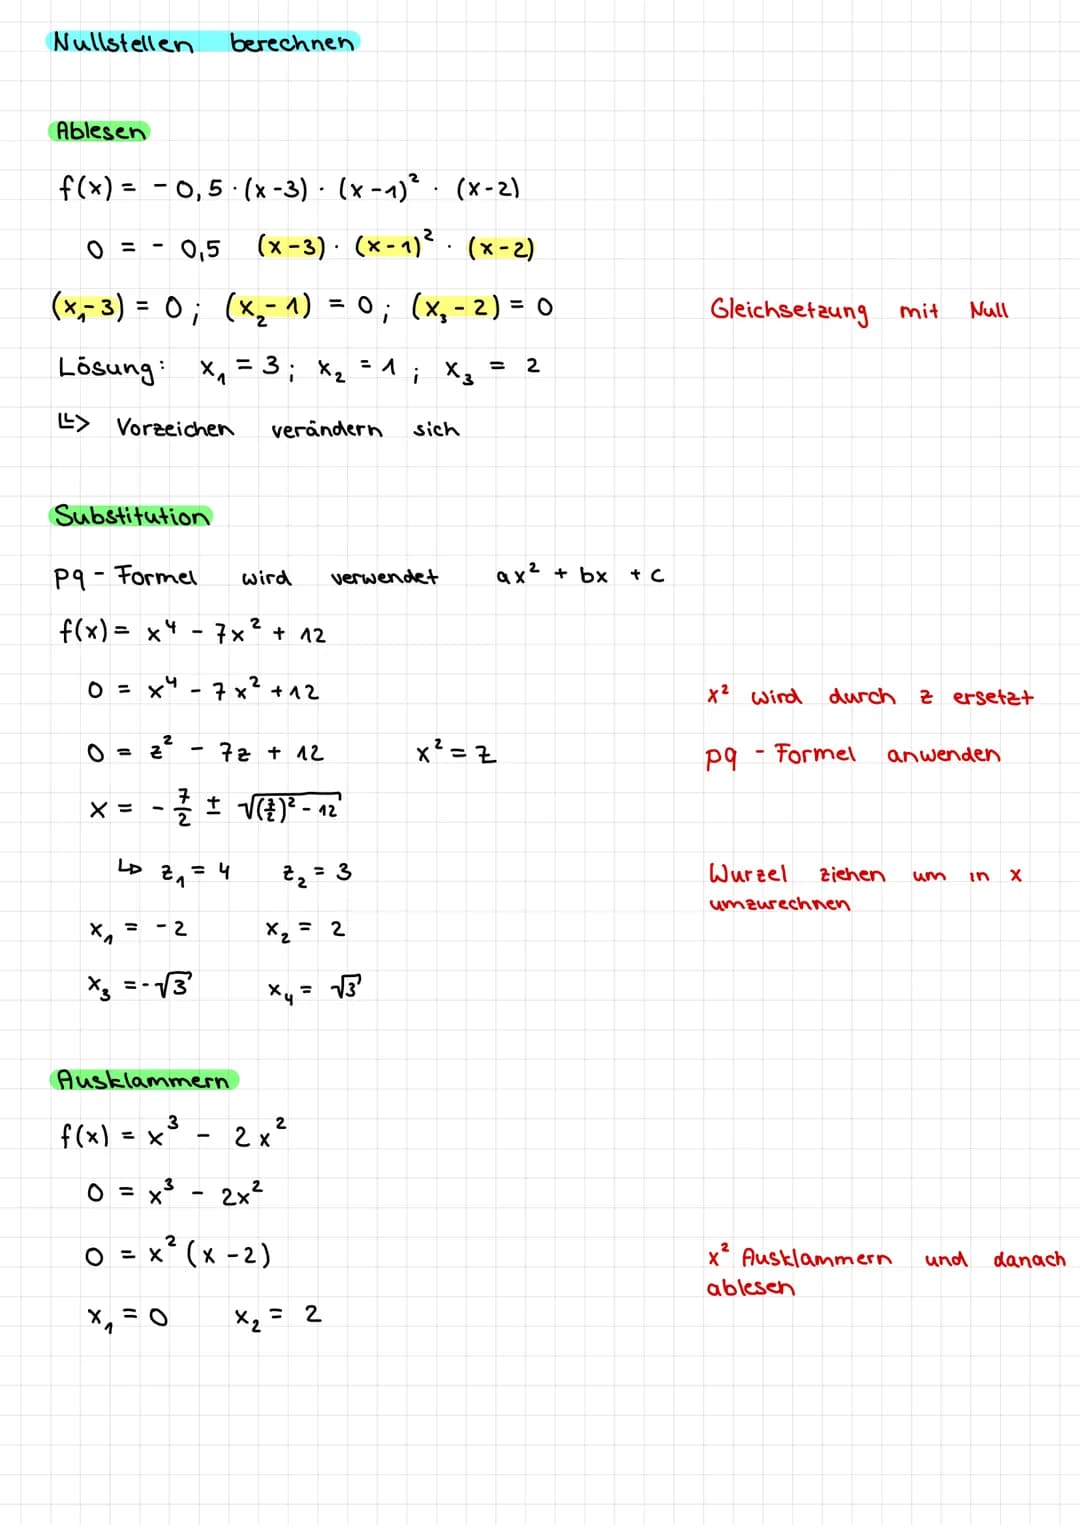 Nullstellen berechnen
Ablesen
f(x) = - 0,5 · (x-3) · (x-1)² · (x-2)
0 = - 0,5 (x-3) · (x-1)² · (x-2)
(x₁-3) = 0 ; (x₂-1) = 0 ; (x₃-2) = 0 Gleichsetzung mit Null
Lösung: x₁ = 3 ; x₂ = 1 ; x₃ = 2
↳> Vorzeichen verändern sich
Substitution
pq - Formel wird verwendet ax² + bx + c
f(x) = x⁴ - 7x² + 12
0 = x⁴ - 7x² + 12 x² wird durch z ersetzt
0 = z² - 7z + 12 x² = z pq - Formel anwenden
x = - 7/2 ± √((7/2)² - 12)
↳ z₁ = 4 z₂ = 3 Wurzel ziehen um in x
umzurechnen
x₁ = - 2 x₂ = 2
x₃ = -√3 x₄ = √3
Ausklammern
f(x) = x³ - 2x²
0 = x³ - 2x²
0 = x² (x - 2) x² Ausklammern und danach
ablesen
x₁ = 0 x₂ = 2